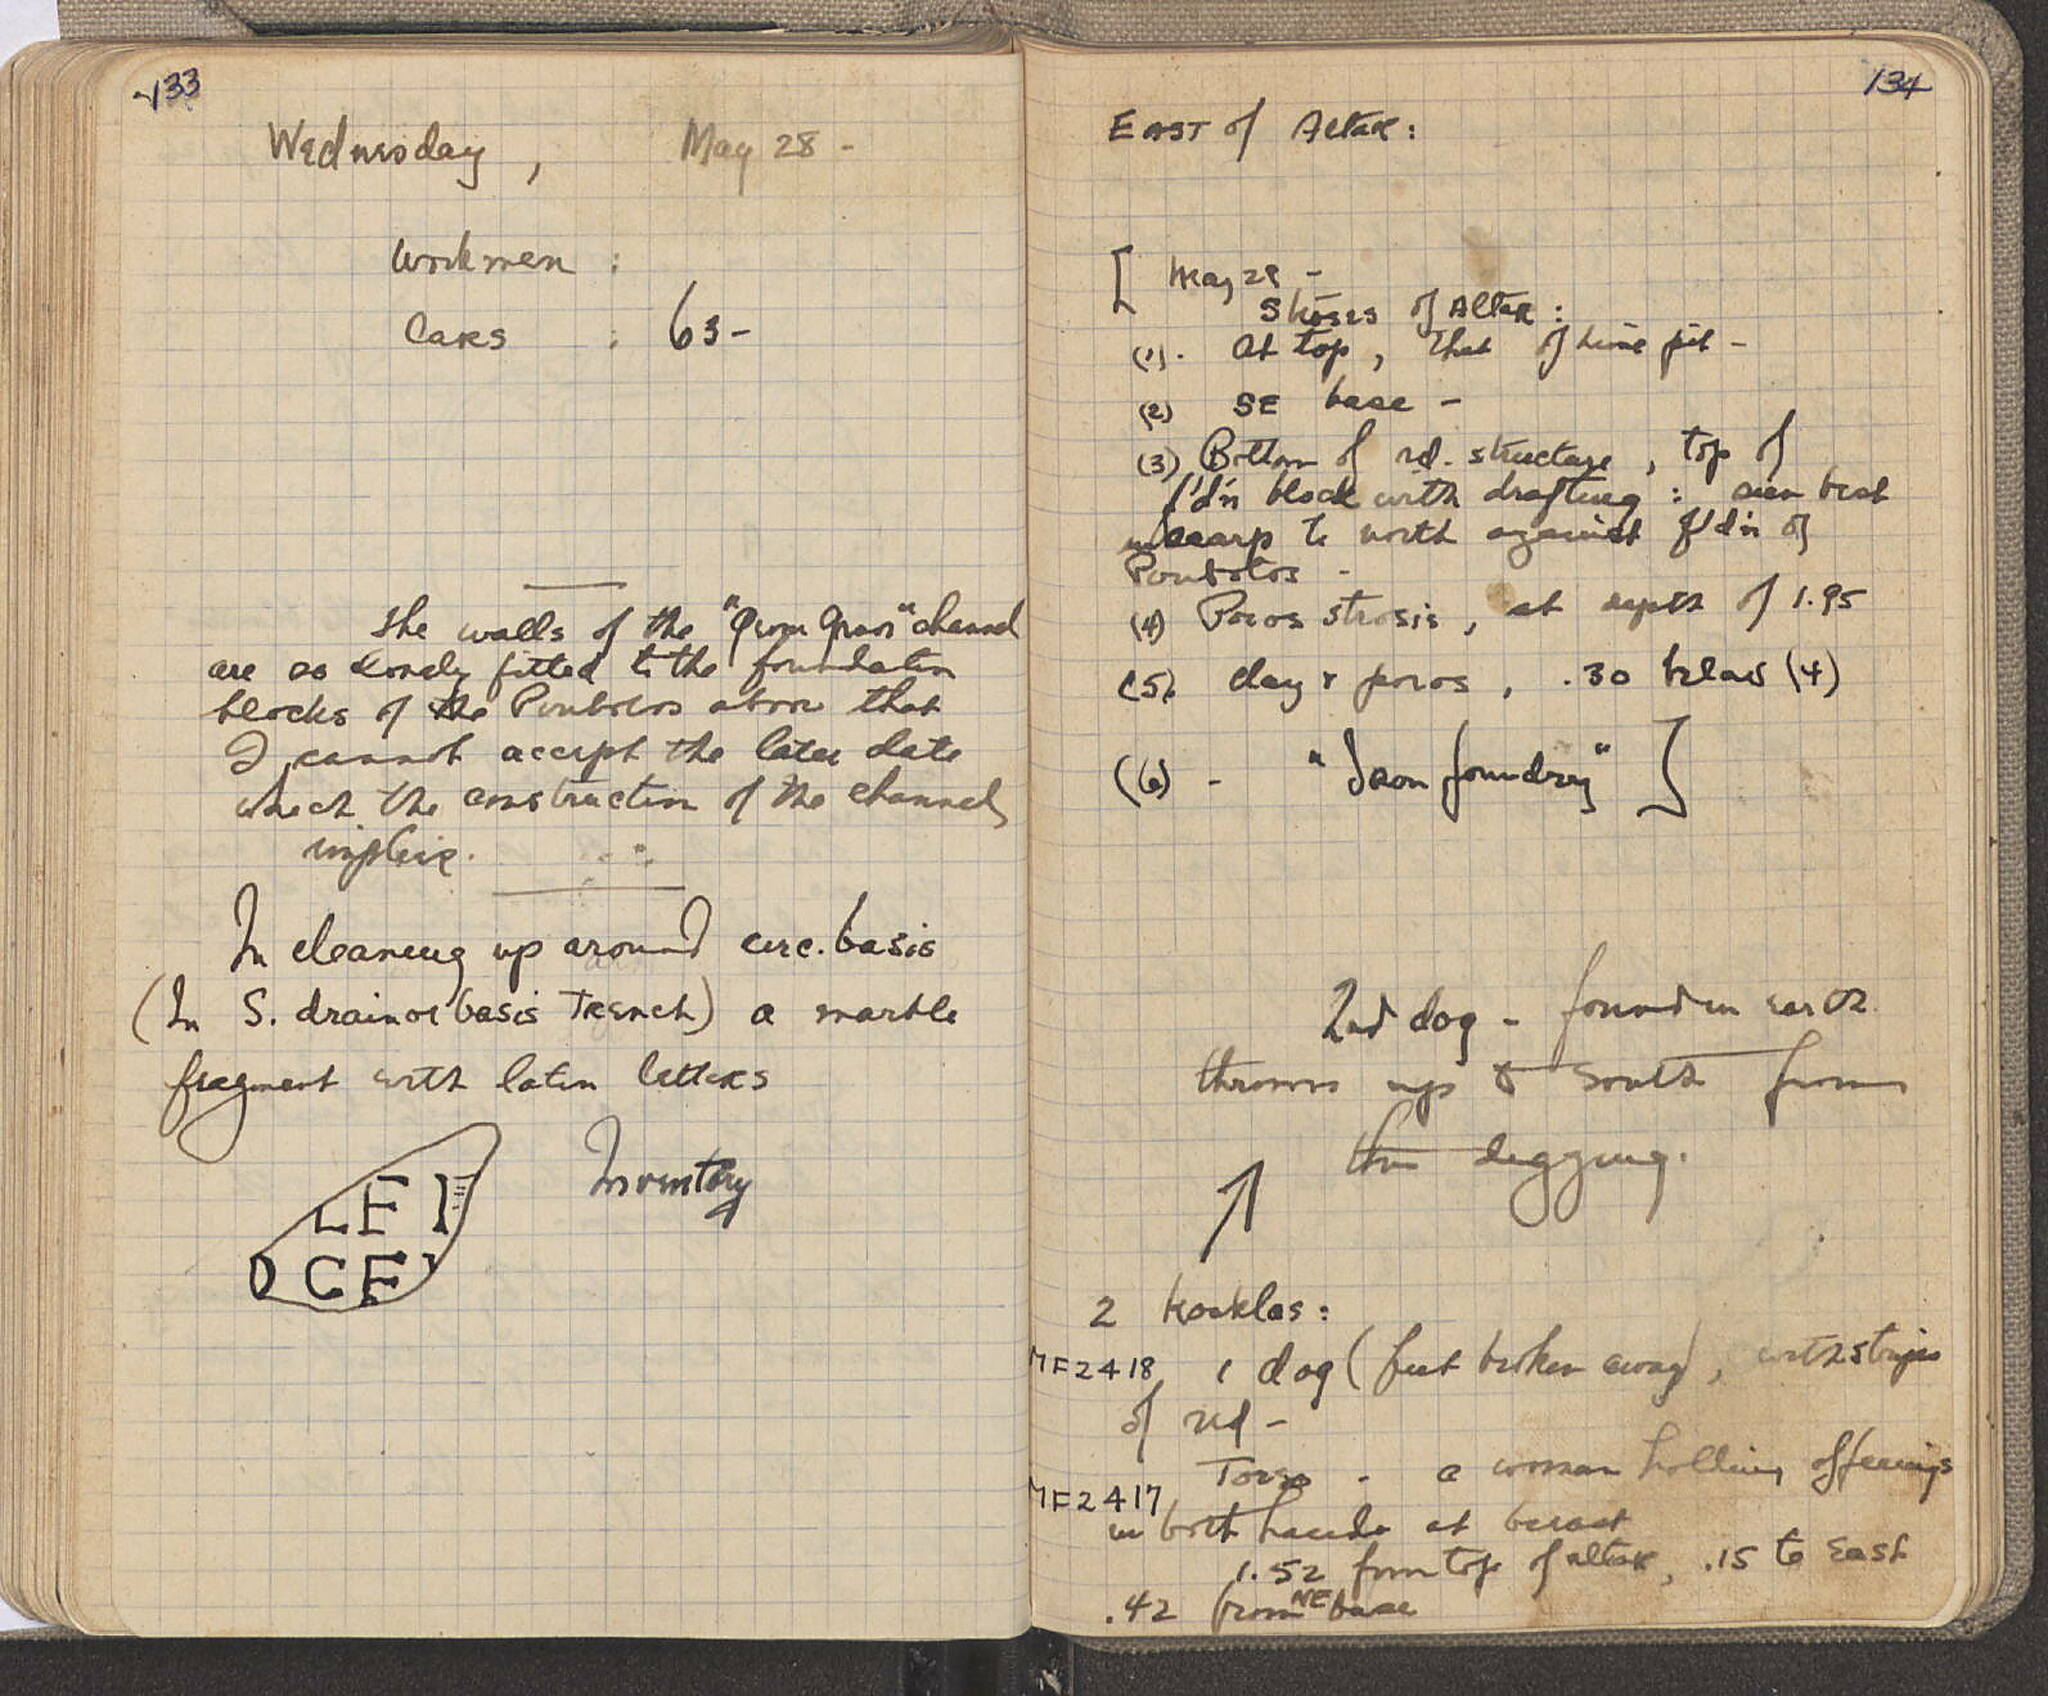 133
Wednesday, May 28 -
Workmen :
Cars : 63 -
The walls of the " " channel
are so closely fitted to the foundation
blocks of the Peribolos above that
I cannot accept the later date
which the construction of the channel
implies.
In cleaning up around circ. basis
(In S. drain or basis Trench) a marble
fragment with latin letters
Inventory
LEI
OCE
134
EAST of Altar:
[ May 28 -
Stroses of Altar :
(1). At top, that of lime pit -
(2) SE base -
(3) Bottom of rd. structure, top of
f'd'n block with drafting : seen best
in scarp to north against f'd'n of
Peribolos -
(4) Poros strosis, at depth of 1.95
(5) clay & poros, .30 below (4)
(6) - "Iron foundry" ]
2nd dog - found in earth
thrown up to South from
this digging.
2 Kouklas :
MF2418 1 dog (feet broken away), with stripes
of red -
MF2417 Torso - a woman holding offerings
in both hands at breast
1.52 from top of altar, .15 to East
.42 from NE base